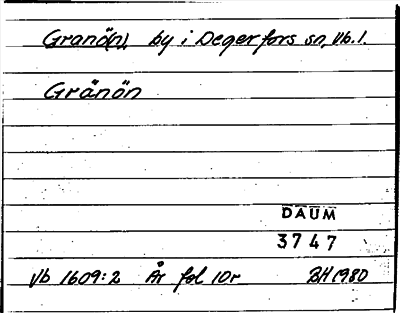 Granö(n), by i Degerfors sn, Vb. l.
Gränön
DAUM
3747
Vb 1609:2 År fol 10r BH 1980